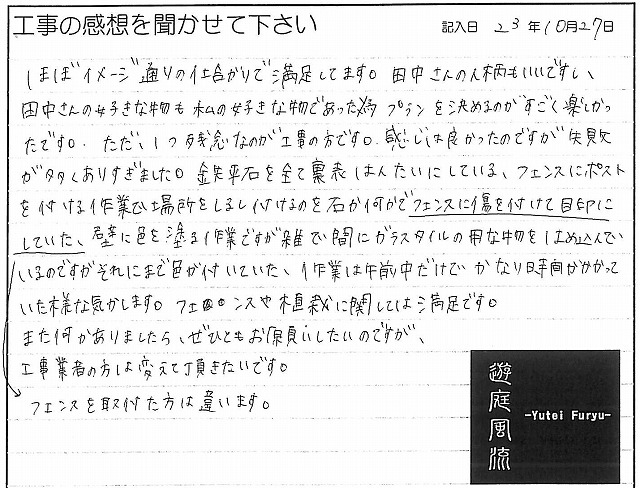 工事の感想を聞かせて下さい
記入日 23年10月27日
ほぼイメージ通りの仕上がりで満足してます。田中さんの人柄もいいですし、
田中さんの好きな物も私の好きな物であった為プランを決めるのがすごく楽しかっ
たです。ただ、1つ残念なのが工事の方です。感じは良かったのですが失敗
が多々ありすぎました。鉄平石を全て裏表はんたいにしている、フェンスにポスト
を付ける作業で場所をしるし付けるのを石か何かでフェンスに傷を付けて目印に
していた、壁に色を塗る作業ですが雑で間にガラスタイルの用な物をはめ込んで
いるのですがそれにまで色が付いていた、作業は午前中だけでかなり時間がかかって
いた様な気がします。フェンスや植栽に関しては満足です。
また何かありましたら、ぜひともお願いしたいのですが、
工事業者の方は変えて頂きたいです。
フェンスを取付た方は違います。
遊庭風流
-Yutei Furyu-